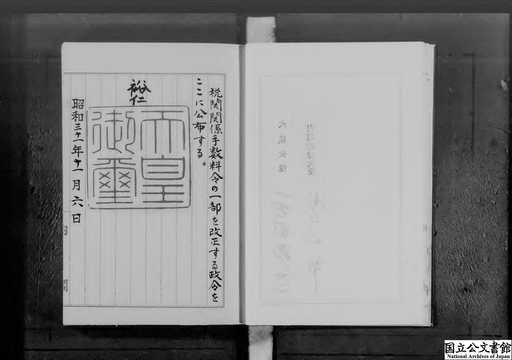 税関関係手数料令の一部を改正する政令を
ここに公布する。
裕仁
天皇
御璽
昭和三十一年十一月六日
国立公文書館
National Archives of Japan